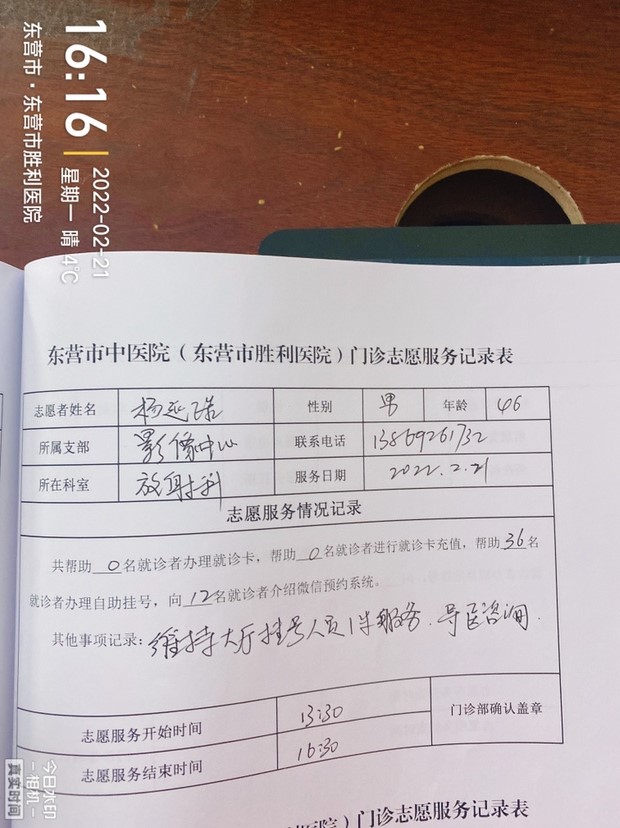 16:16
2022-02-21
星期一 晴 4℃
东营市·东营市胜利医院
东营市中医院（东营市胜利医院）门诊志愿服务记录表
志愿者姓名 杨延 性别 男 年龄 46
所属支部 影像中心 联系电话 13869261732
所在科室 放射科 服务日期 2022.2.21
志愿服务情况记录
共帮助 0 名就诊者办理就诊卡，帮助 0 名就诊者进行就诊卡充值，帮助 36 名
就诊者办理自助挂号，向 12 名就诊者介绍微信预约系统。
其他事项记录：维持大厅挂号人员 服务、导医咨询.
志愿服务开始时间 13:30 门诊部确认盖章
志愿服务结束时间 16:30
医院）门诊志愿服务记录表
今日水印
相机
真实时间